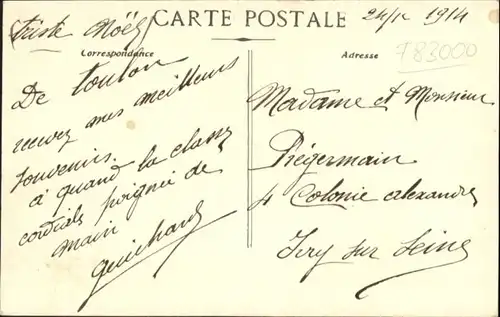 triste Noël
CARTE POSTALE
24/12 1914
Correspondance
Adresse
F83000
De Toulon
recevez mes meilleurs
souvenirs.
à quand la classe
cordiale poignée de
main
Guichard
Madame et Monsieur
Piégermain
4 Colonie Alexandre
Ivry sur Seine